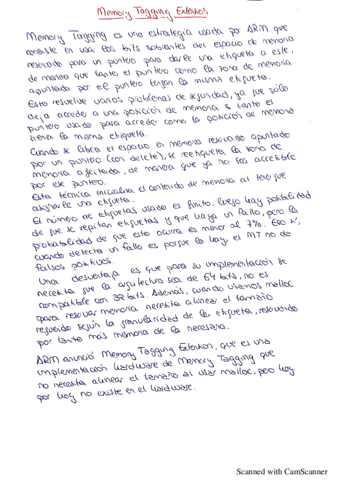 Memory Tagging Extension
Memory Tagging es una estrategia usada por ARM que
consiste en usar los bits sobrantes del espacio de memoria
reservado para un puntero para darle una etiqueta a este,
de manera que tanto el puntero como la zona de memoria
apuntada por el puntero tengan la misma etiqueta.
Esto resuelve varios problemas de seguridad, ya que solo
deja acceder a una posición de memoria si tanto el
puntero usado para acceder como la posición de memoria
tiene la misma etiqueta.
Cuando se libera el espacio en memoria reservado apuntado
por un puntero (con delete), se reetiqueta la zona de
memoria afectada, de manera que ya no sea accesible
por ese puntero.
Esta técnica inicializa el contenido de memoria al que
asignarle una etiqueta.
El número de etiquetas usadas es finito, luego hay posibilidad
de que se repitan etiquetas y que haya un fallo, pero la
probabilidad de que esto ocurra es menor al 7%. Eso sí,
cuando detecta un fallo es porque lo hay, el MT no da
falsos positivos.
Una desventaja es que para su implementación se
necesita que la arquitectura sea de 64 bits, no es
compatible con 32 bits. Además, cuando usamos malloc
para reservar memoria necesita alinear el tamaño
requerido según la granularidad de la etiqueta, reservando
por tanto más memoria de la necesaria.
ARM anunció Memory Tagging Extension, que es una
implementación hardware de Memory Tagging que
no necesita alinear el tamaño al usar malloc, pero hoy
por hoy no existe en el hardware.
Scanned with CamScanner